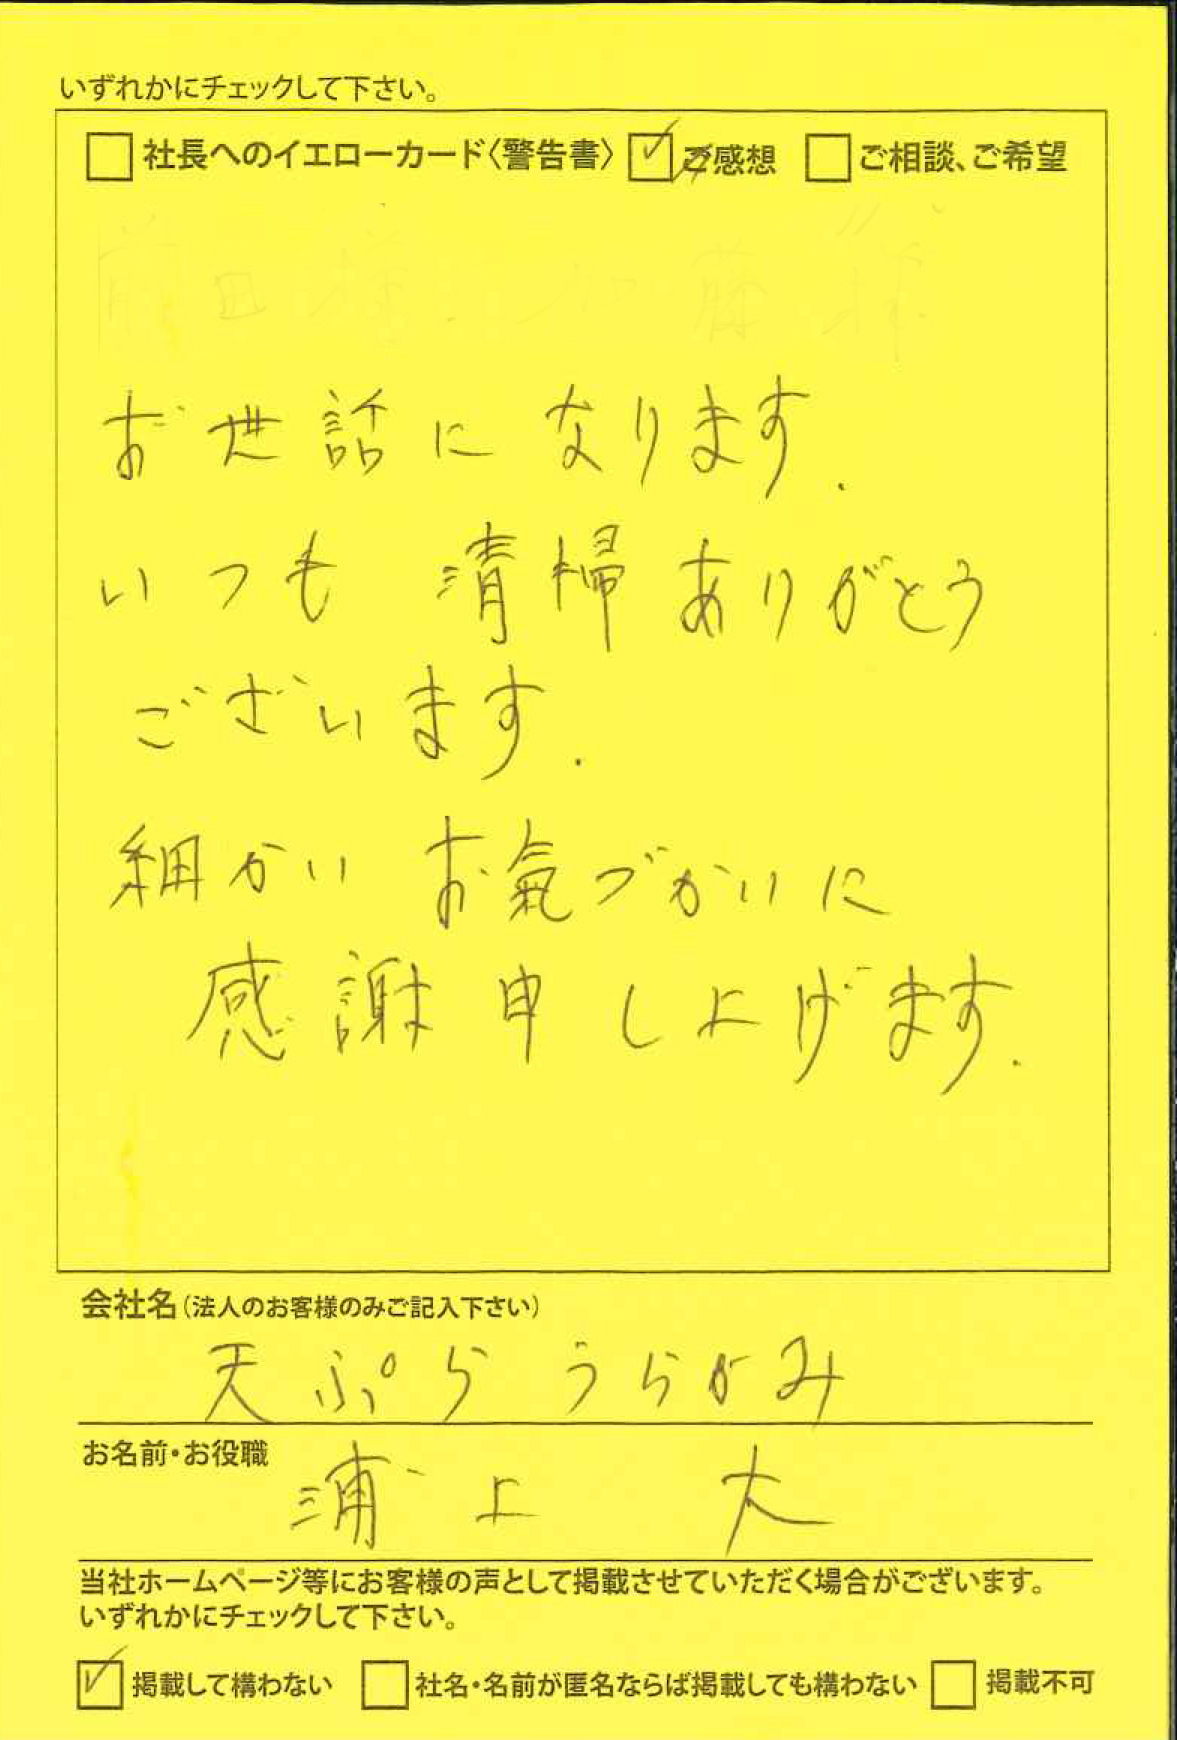 いずれかにチェックして下さい。
社長へのイエローカード〈警告書〉 ご感想 ご相談、ご希望
お世話になります.
いつも 清掃ありがとう
ございます.
細かい お氣づかいに
感謝申し上げます.
会社名(法人のお客様のみご記入下さい)
天ぷら うらがみ
お名前・お役職
浦上 大
当社ホームページ等にお客様の声として掲載させていただく場合がございます。
いずれかにチェックして下さい。
掲載して構わない 社名・名前が匿名ならば掲載しても構わない 掲載不可